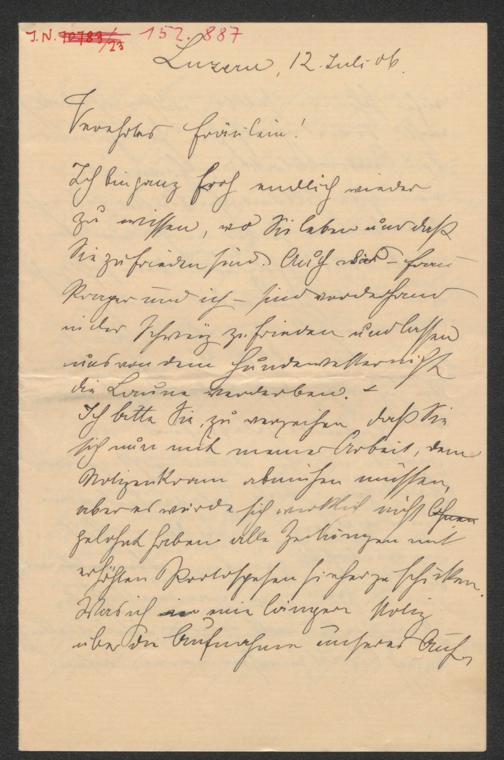 J.N. 70783/23 152.887
Luzern, 12. Juli 06.
Verehrtes Fräulein!
Ich bin ganz froh endlich wieder
zu wissen, wo Sie leben und daß
Sie zufrieden sind. Auch wir – Frau
und ich – sind vorderhand
in der Schweiz zufrieden und lassen
uns von dem Hundewetter nicht
die Laune verderben. –
Ich bitte Sie, zu verzeihen, daß Sie
sich nun mit meiner Arbeit, dem
Notizenkram abmühen müssen,
aber es würde sich wirklich nicht
gelohnt haben alle Zeitungen mit
erhöhten Portospesen hieher zu schicken.
Was ich eine längere Notiz
über die Aufnahme unseres Auf-